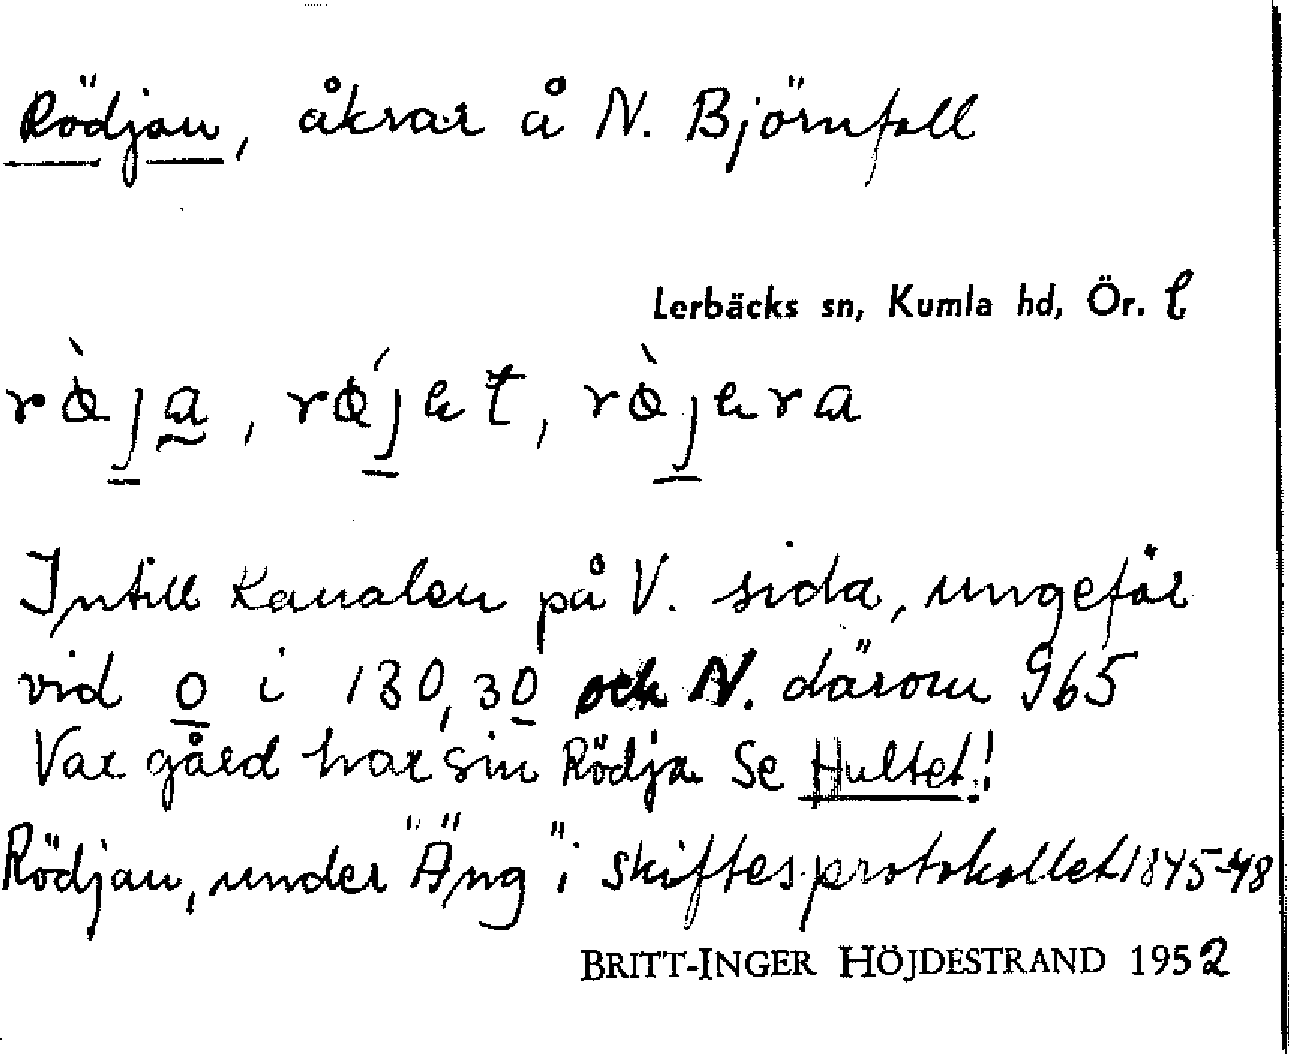 Rödjan, åkrar å N. Björnfall
Lerbäcks sn, Kumla hd, Ör. l
rø̀ja, rǿjet, rø̀jera
Intill kanalen på V. sida, ungefär
vid o i 130,30 och N. därom 965
Var gård har sin Rödja Se Hultet!
Rödjan, under "Äng" i skiftesprotokollet 1845-48
BRITT-INGER HÖJDESTRAND 1952